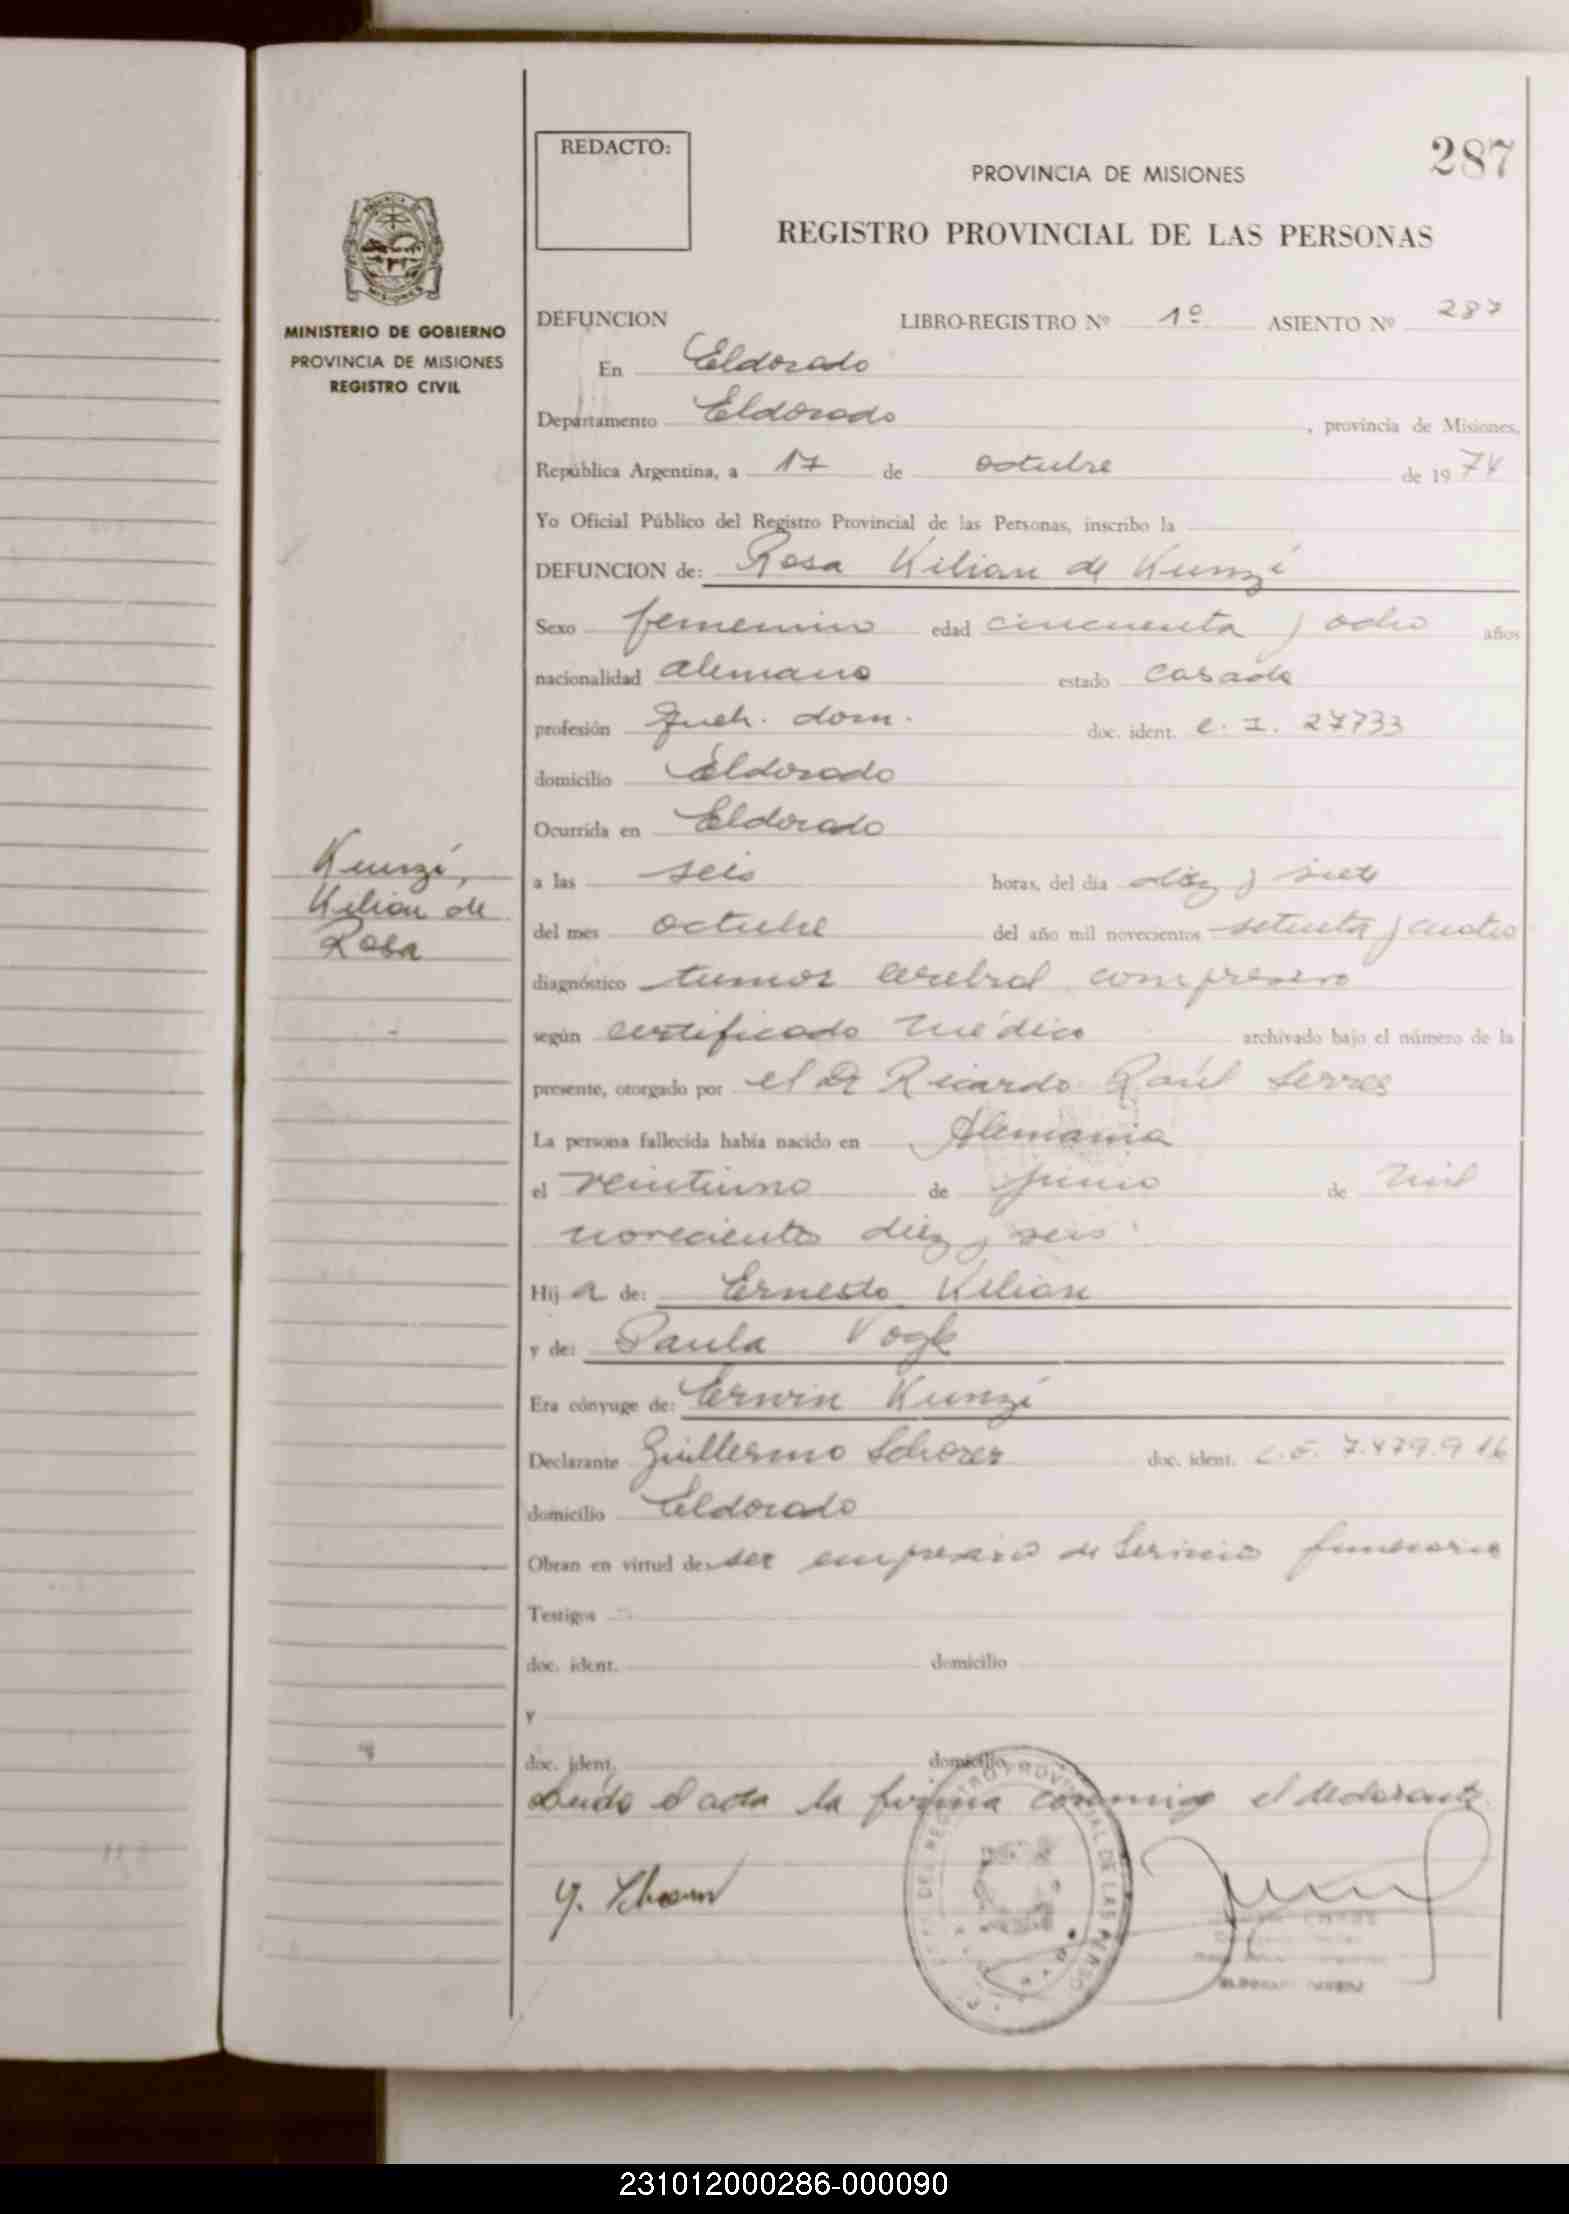 REDACTO:
287
PROVINCIA DE MISIONES
REGISTRO PROVINCIAL DE LAS PERSONAS
MINISTERIO DE GOBIERNO
PROVINCIA DE MISIONES
REGISTRO CIVIL
DEFUNCION LIBRO-REGISTRO Nº 1º ASIENTO Nº 287
En Eldorado
Departamento Eldorado , provincia de Misiones,
República Argentina, a 17 de octubre de 1974
Yo Oficial Público del Registro Provincial de las Personas, inscribo la
DEFUNCION de: Rosa Kilian de Kunzi
Sexo femenino edad cincuenta y ocho años
nacionalidad alemana estado casada
profesión Queh. dom. doc. ident. c. I. 27733
domicilio Eldorado
Ocurrida en Eldorado
Kunzi,
Kilian de
Rosa
a las seis horas, del día diez y siete
del mes octubre del año mil novecientos setenta y cuatro
diagnóstico tumor cerebral compresivo
según certificado médico archivado bajo el número de la
presente, otorgado por el Dr Ricardo Raúl Serres
La persona fallecida había nacido en Alemania
el veintiuno de junio de mil
novecientos diez y seis
Hija de: Ernesto Kilian
y de: Paula Vogk
Era cónyuge de: Erwin Kunzi
Declarante Guillermo Schorer doc. ident. 7.479.916
domicilio Eldorado
Obran en virtud de: ser empresario de servicio funerario
Testigos
doc. ident. domicilio
y
doc. ident. domicilio
Leída el acta la firma conmigo el declarante
REGISTRO PROVINCIAL DE LAS PERSO
231012000286-000090